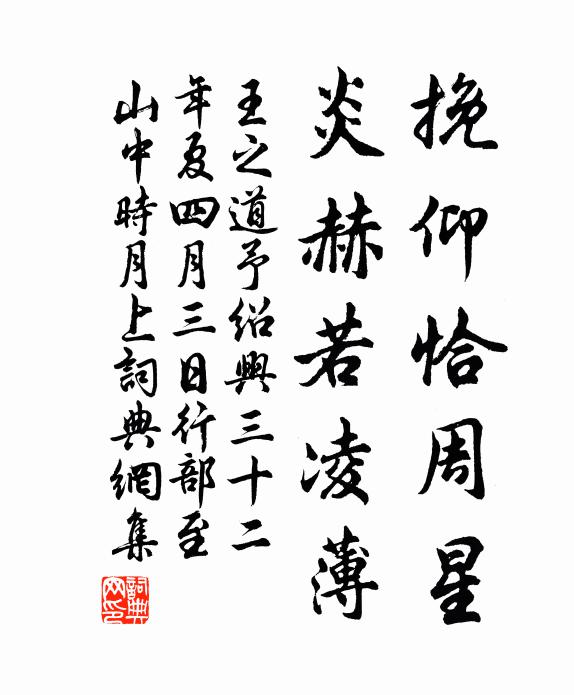 挽仰恰周星
炎赫若凌薄
王之道予紹興三十二
年夏四月三日行部至
山中時月上詞典網集
詞典网印